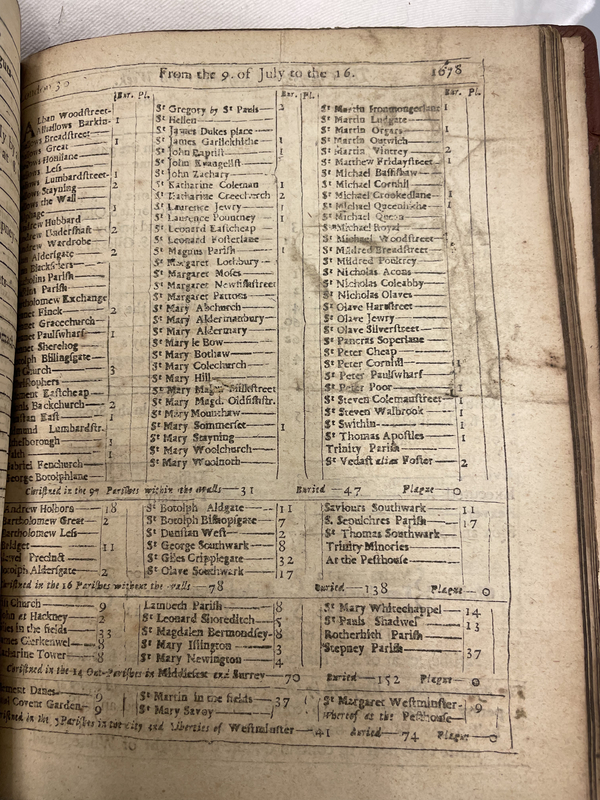 London 30 From the 9. of July to the 16. 1678
Bur. Pl. Bur. Pl. Bur. Pl.
Alban Woodstreet St Gregory by St Pauls 2 St Martin Ironmongerlane 1
Alhallows Barkin 1 St Hellen St Martin Ludgate
Breadstreet St James Dukes place St Martin Orgars 1
Great 1 St James Garlickhithe 1 St Martin Outwich
Honilane St John Baptist 1 St Martin Vintrey 2
Less St John Evangelist St Matthew Fridaystreet 1
Lumbardstreet 1 St John Zachary St Michael Bassishaw
Stayning 2 St Katharine Coleman 1 St Michael Cornhil
the Wall St Katharine Creechurch 2 St Michael Crookedlane 1
St Laurence Jewry 1 St Michael Queenhithe 1
Hubbard St Laurence Pountney 1 St Michael
Undershaft 2 St Leonard Eastcheap St Michael Royal
Wardrobe St Leonard Fosterlane St Michael Woodstreet
Aldersgate 2 St Magnus Parish 1 St Mildred Breadstreet
Blackfriers St Margaret Lothbury St Mildred Poultrey
Parish St Margaret Moses St Nicholas Acons
Parish St Margaret Newfishstreet St Nicholas Coleabby
Exchange St Margaret Pattons St Nicholas Olaves
Finck 2 St Mary Abchurch St Olave Hartstreet
Gracechurch St Mary Aldermanbury St Olave Jewry
Paulswharf 1 St Mary Aldermary St Olave Silverstreet
Sherehog St Mary le Bow St Pancras Soperlane
Billingsgate St Mary Bothaw St Peter Cheap
Church 3 St Mary Colechurch St Peter Cornhil 1
St Mary Hill St Peter Paulswharf
Eastcheap St Mary Magd. Milkstreet St Peter Poor 1
Backchurch 2 St Mary Magd. Oldfishstr. St Steven Colemanstreet 1
East 1 St Mary Mounthaw St Steven Walbrook 1
Lumbardstr. St Mary Sommerset 1 St Swithin 1
1 St Mary Stayning St Thomas Apostles 1
1 St Mary Woolchurch Trinity Parish
Fenchurch St Mary Woolnoth St Vedast alias Foster 2
George Botolphlane
Christned in the 97 Parishes within the walls 31 Buried 47 Plague 0
Andrew Holborn 18 St Botolph Aldgate 11 Saviours Southwark 11
Bartholomew Great 2 St Botolph Bishopsgate 7 S. Sepulchres Parish 17
Bartholomew Less St Dunstan West 2 St Thomas Southwark
Bridget 11 St George Southwark 8 Trinity Minories
Precinct St Giles Cripplegate 32 At the Pesthouse
Botolph Aldersgate 2 St Olave Southwark 17
Christned in the 16 Parishes without the walls 78 Buried 138 Plague 0
Church 9 Lambeth Parish 8 St Mary Whitechappel 14
at Hackney 2 St Leonard Shoreditch 5 St Pauls Shadwel 13
in the fields 33 St Magdalen Bermondsey 8 Rotherhith Parish
James Clerkenwel 8 St Mary Islington 3 Stepney Parish 37
Katharine Tower 8 St Mary Newington 4
Christned in the 14 Out-Parishes in Middlesex and Surrey 70 Buried 152 Plague 0
Clement Danes 9 St Martin in the fields 37 St Margaret Westminster 9
Covent Garden 9 St Mary Savoy Whereof at the Pesthouse
Christned in the 5 Parishes in the City and Liberties of Westminster 41 Buried 74 Plague 0